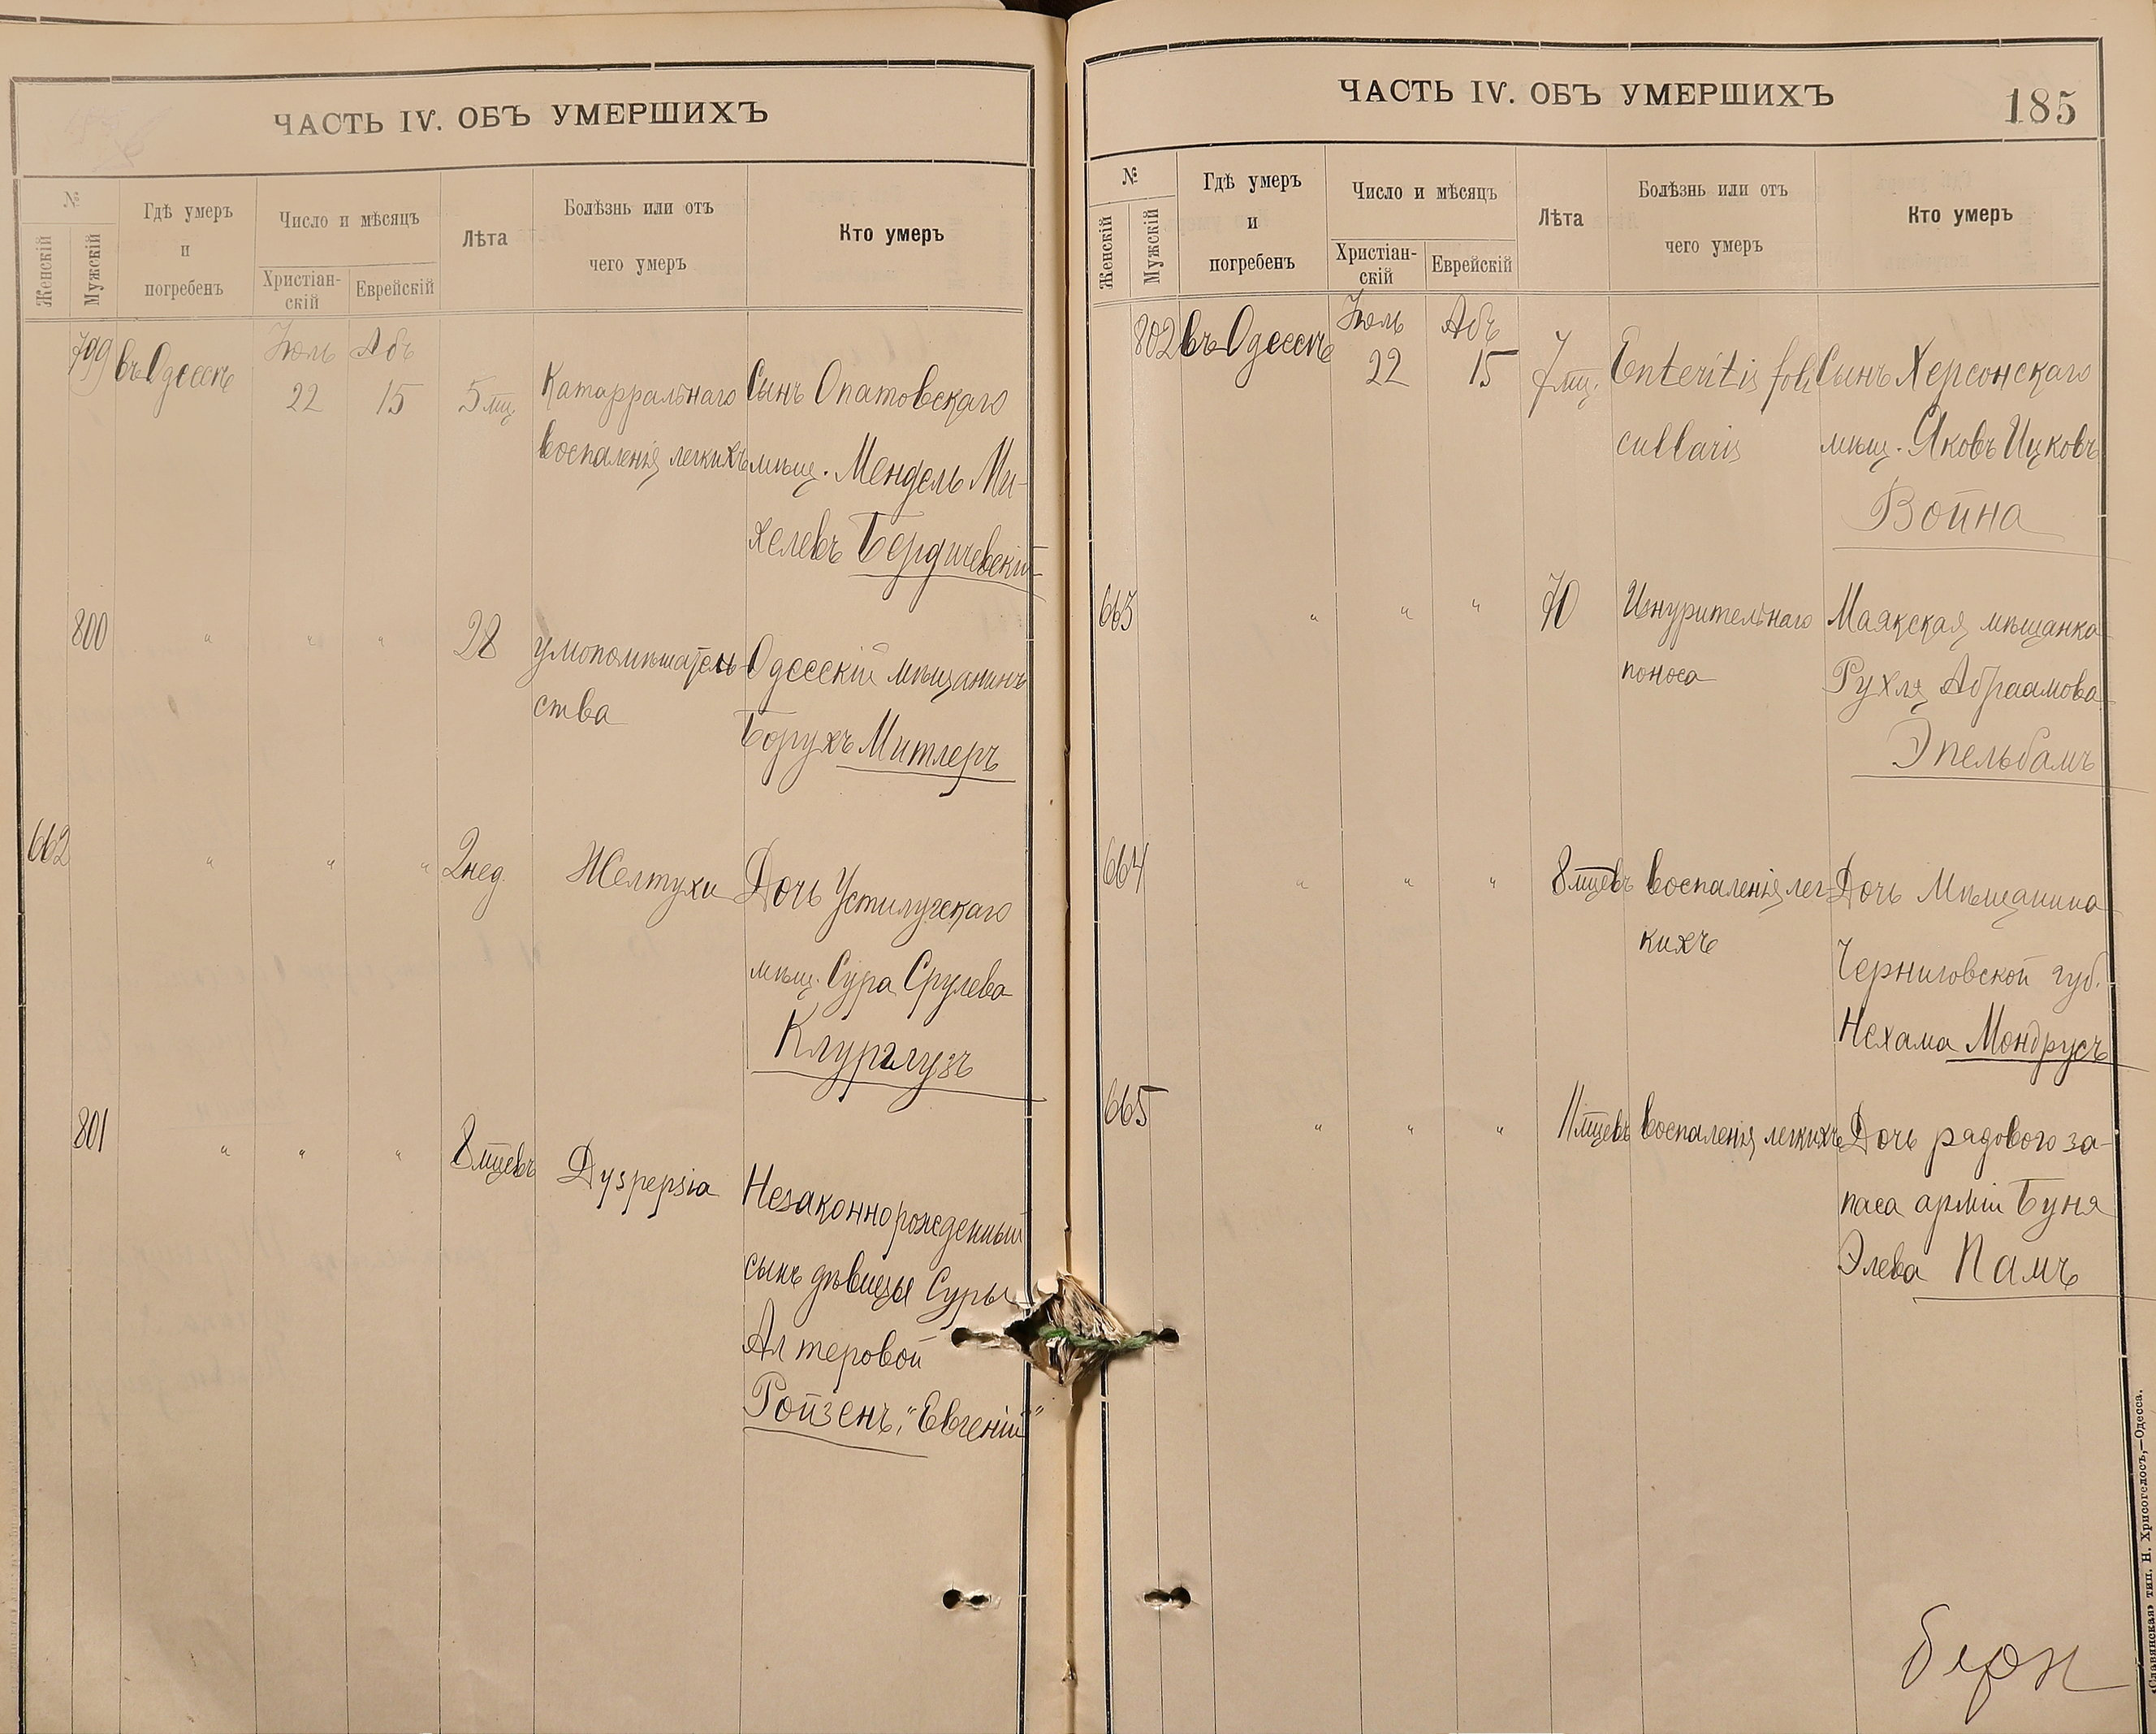 ЧАСТЬ IV. ОБЪ УМЕРШИХЪ
№
Женскій
Мужскій
Гдѣ умеръ
и
погребенъ
Число и мѣсяцъ
Христіан-
скій
Еврейскій
Лѣта
Болѣзнь или отъ
чего умеръ
Кто умеръ
799 въ Одессѣ Іюль 22 Абъ 15 5 мц. Катарральнаго Сынъ Опатовскаго
воспаленія легкихъ мѣщ. Мендель Ми-
хелевъ Бердичевскій
800 " " " 28 умопомѣшатель Одесскій мѣщанинъ
ства Борухъ Митлеръ
662 " " " 2 нед. Желтухи Дочь Устилугскаго
мѣщ. Сура Срулева
Клурглузъ
801 " " " 8 мцевъ Dyspepsia Незаконнорожденный
сынъ дѣвицы Суры
Алтеровой
Ройзенъ, "Евгеній"
ЧАСТЬ IV. ОБЪ УМЕРШИХЪ
185
№
Женскій
Мужскій
Гдѣ умеръ
и
погребенъ
Число и мѣсяцъ
Христіан-
скій
Еврейскій
Лѣта
Болѣзнь или отъ
чего умеръ
Кто умеръ
802 въ Одессѣ Іюль 22 Абъ 15 7 мц. Enteritis foli Сынъ Херсонскаго
cullaris мѣщ. Яковъ Ицковъ
Война
663 " " " 70 Изнурительнаго Маякская мѣщанка
поноса Рухля Абраамова
Эпельбамъ
664 " " " 8 мцевъ воспаленія лег- Дочь Мѣщанина
кихъ Черниговской губ.
Нехама Мондрусъ
665 " " " 11 мцевъ воспаленія легкихъ Дочь рядового за-
паса арміи Буня
Элева Памъ
«Славянская» тип. Н. Хрисогелосъ,—Одесса.